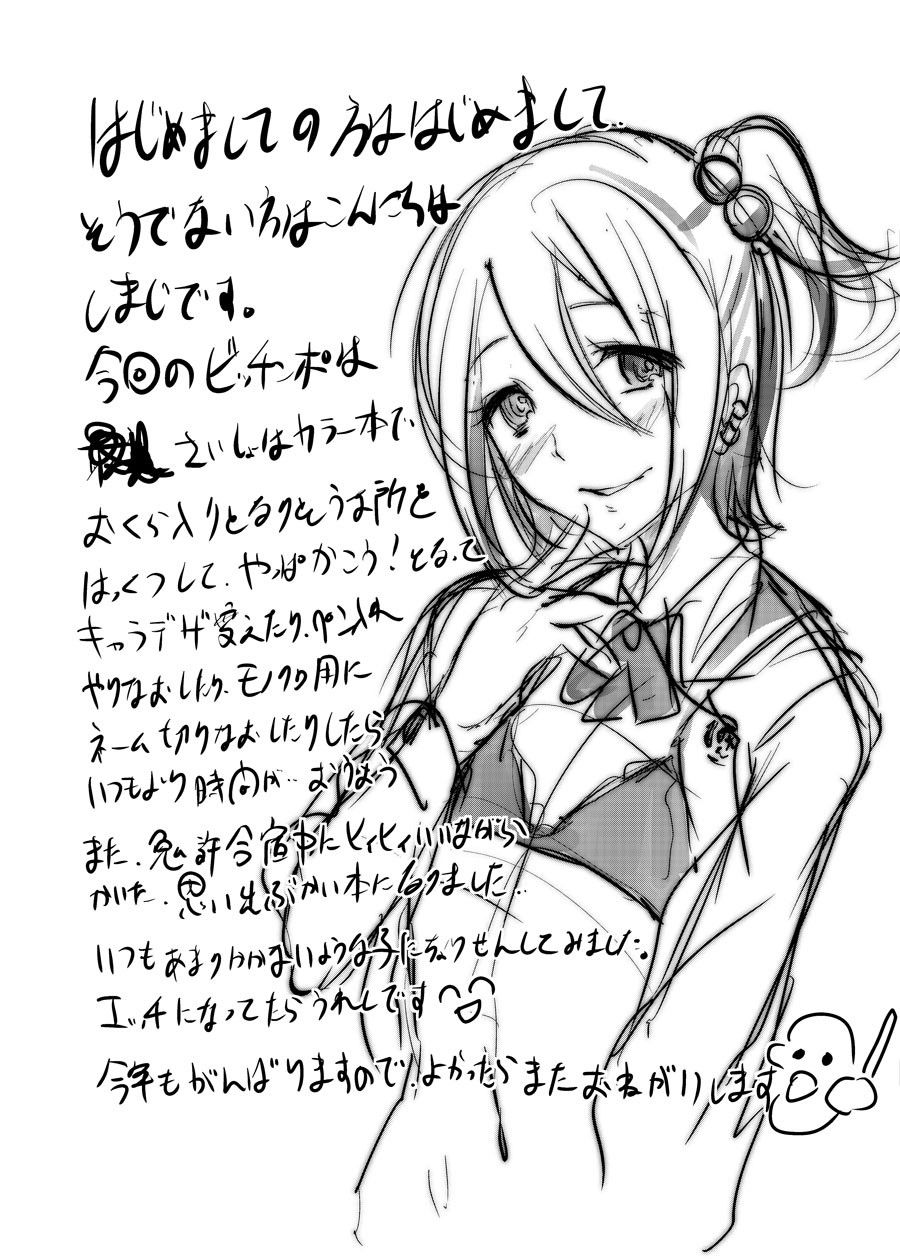 はじめましての方ははじめまして。
そうでない方はこんにちは
しまじです。
今回のビッチンポは
さいしょはカラー本で
おくら入りとなりそうな所を
はっくつして、やっぱかこう！となって
キャラデザ変えたり、ペン入れ
やりなおしたり、モノクロ用に
ネーム切りなおしたりしたら
いつもより時間が…おりもう
また、免許合宿中にヒィヒィいいながら
かいた、思い出ぶかい本になりました…
いつもあまりかかないような子にちょうせんしてみました。
エッチになってたらうれしいです
今年もがんばりますので、よかったらまたおねがいします